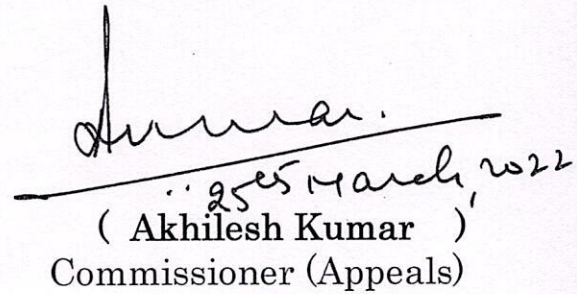 Akumar.
25th March, 2022
( Akhilesh Kumar )
Commissioner (Appeals)